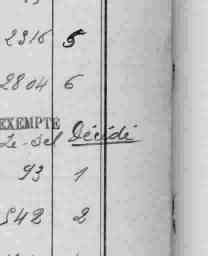 2316 5
2804 6
EXEMPTE
Le-sel Décédé
93 1
542 2